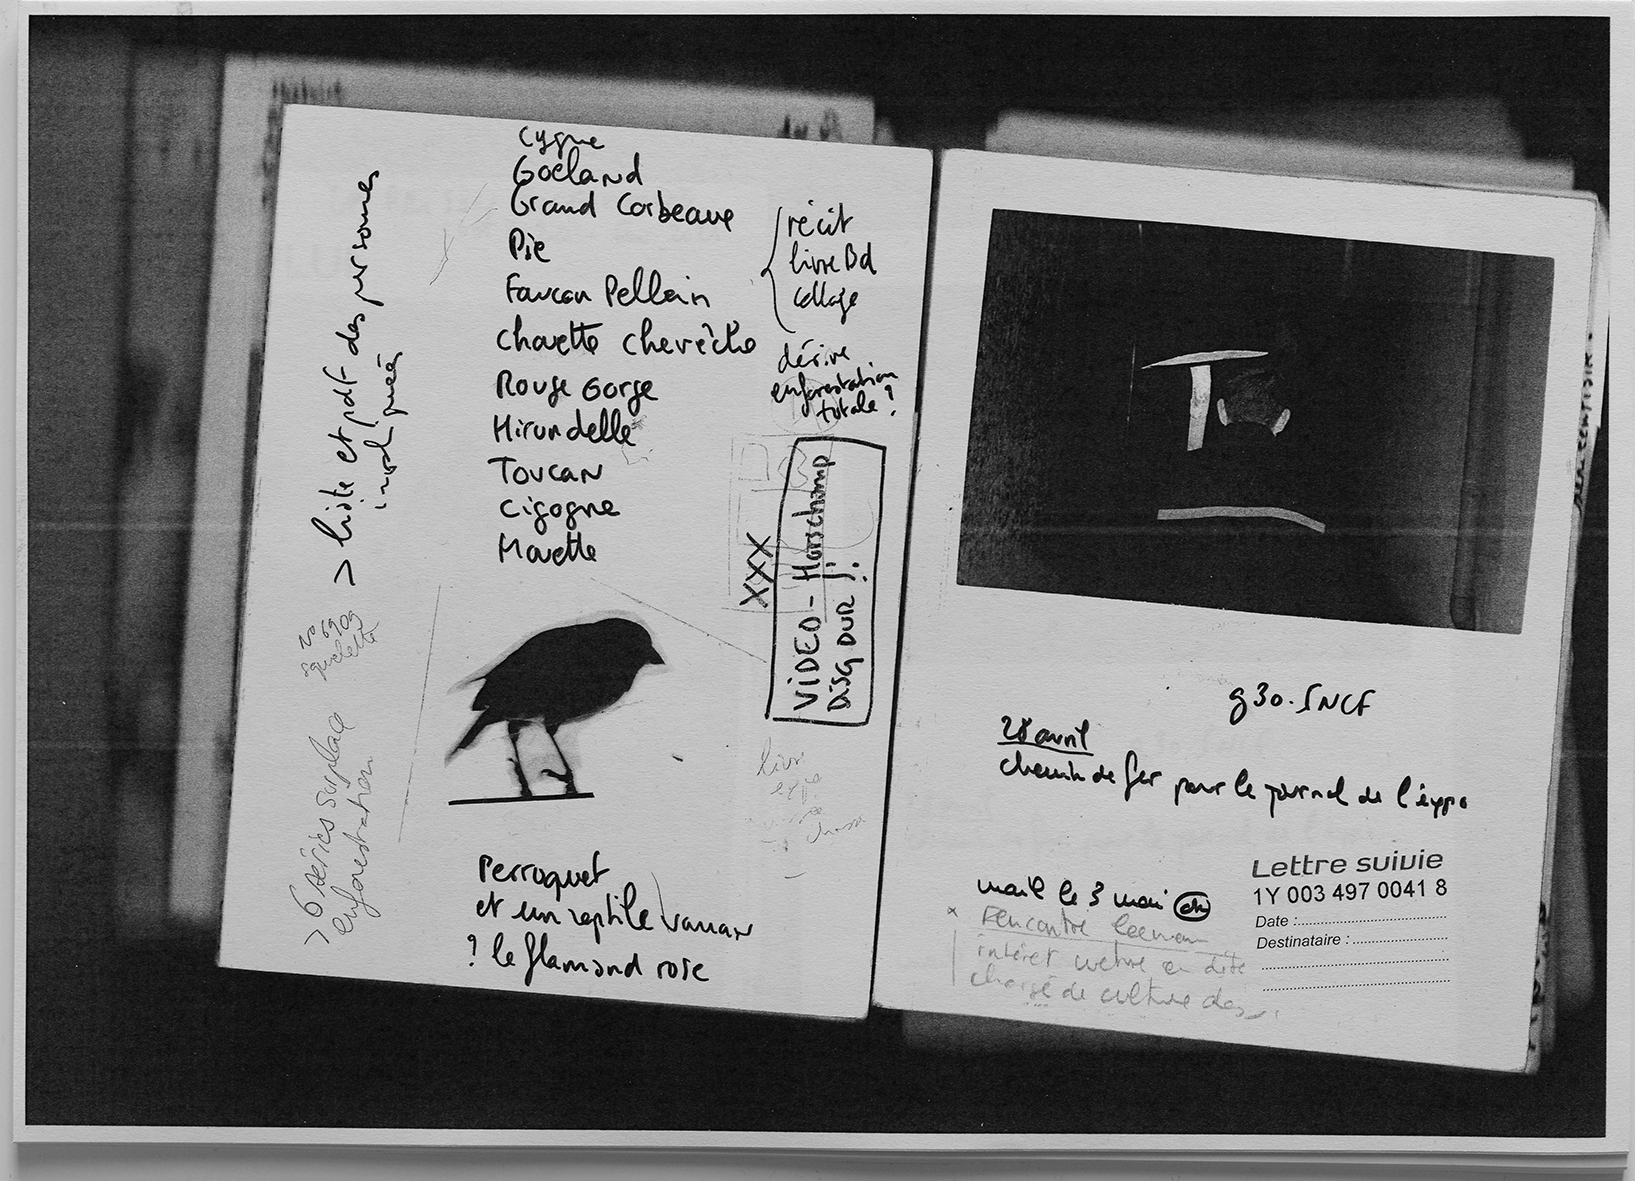 Cygne
Goéland
Grand Corbeau
Pie
Faucon Pellerin
Chouette chevêche
Rouge Gorge
Hirundelle
Toucan
Cigogne
Mouette
récit
livre Bd
collage
dérive
enforestation
totale ?
XXX
VIDEO - Horschamp
DISQ DUR J.
> liste et pdf des personnes
impliquées
> 6 séries sur place
enforestation
Perroquet
et un reptile varan
? le flamand rose
g30. SNCF
28 avril
chemin de fer pour le journal de l'expo
mail le 3 mai ok
Rencontre
intéret
chargé de culture des
Lettre suivie
1Y 003 497 0041 8
Date :
Destinataire :